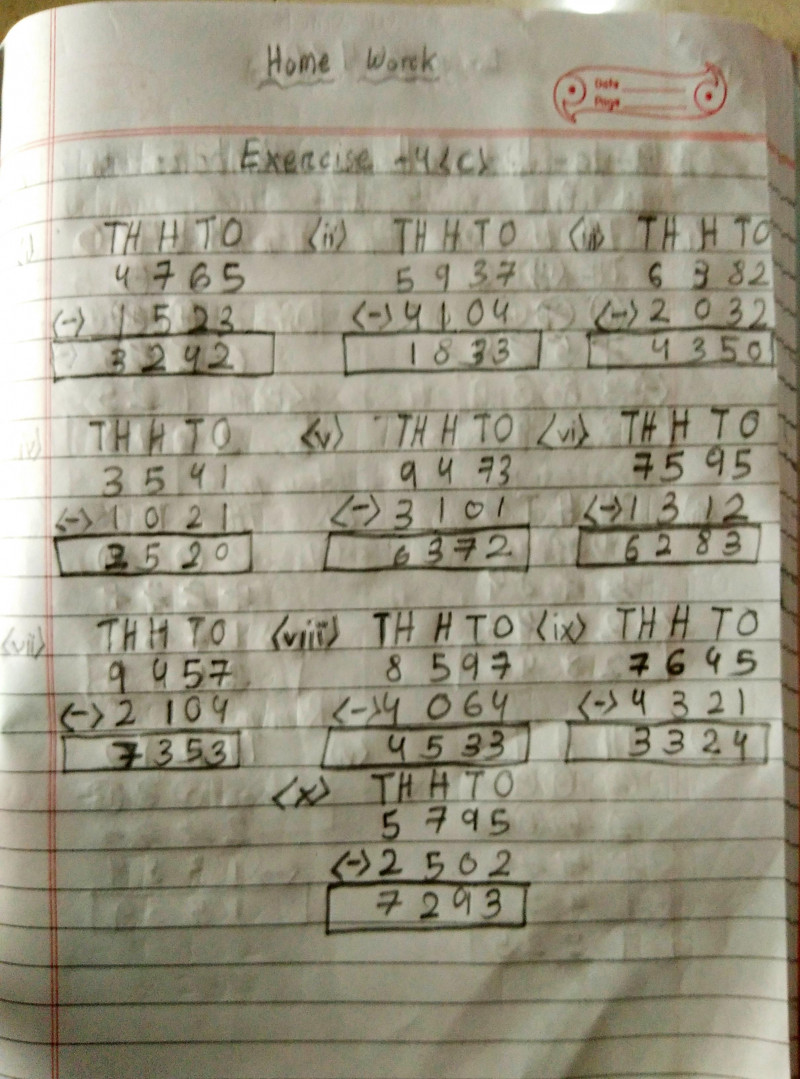 Home Worck
Date
Page
Exercise -4(C)
TH H T O (ii) TH H T O (iii) TH H T O
4 7 6 5 5 9 3 7 6 3 8 2
(-) 1 5 2 3 (-) 4 1 0 4 (-) 2 0 3 2
3 2 4 2 1 8 3 3 4 3 5 0
TH H T O (v) TH H T O (vi) TH H T O
3 5 4 1 9 4 7 3 7 5 9 5
(-) 1 0 2 1 (-) 3 1 0 1 (-) 1 3 1 2
2 5 2 0 6 3 7 2 6 2 8 3
(vii) TH H T O (viii) TH H T O (ix) TH H T O
9 4 5 7 8 5 9 7 7 6 4 5
(-) 2 1 0 4 (-) 4 0 6 4 (-) 4 3 2 1
7 3 5 3 4 5 3 3 3 3 2 4
(x) TH H T O
5 7 9 5
(-) 2 5 0 2
7 2 9 3